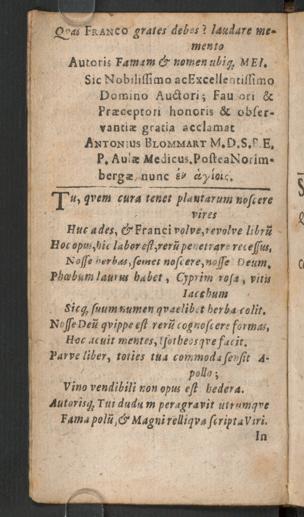 Quas FRANCO grates debes? laudare me-
mento
Autoris Famam & nomen ubiq; MEI.
Sic Nobilissimo ac Excellentissimo
Domino Auctori; Fautori &
Præceptori honoris & obser-
vantiæ gratia acclamat
ANTONIUS BLOMMART M.D.S.P.E.
P. Aulæ Medicus. Postea Norim-
bergæ, nunc ἐν ἁγίοις.
Tu, qvem cura tenet plantarum noscere
vires
Huc ades, & Franci volve, revolve librũ
Hoc opus, hic labor est, rerũ penetrare recessus,
Nosse herbas, semet noscere, nosse Deum.
Phœbum laurus habet, Cyprim rosa, vitis
Iacchum
Sicq, suum numen qvaelibet herba colit.
Nosse Deũ qvippe est rerũ cognoscere formas,
Hoc acuit mentes, isotheosqve facit.
Parve liber, toties tua commoda sensit A-
pollo;
Vino vendibili non opus est hedera.
Autorisq, Tui dudum peragravit utrumqve
Fama polũ, & Magni relliqva scripta Viri.
In